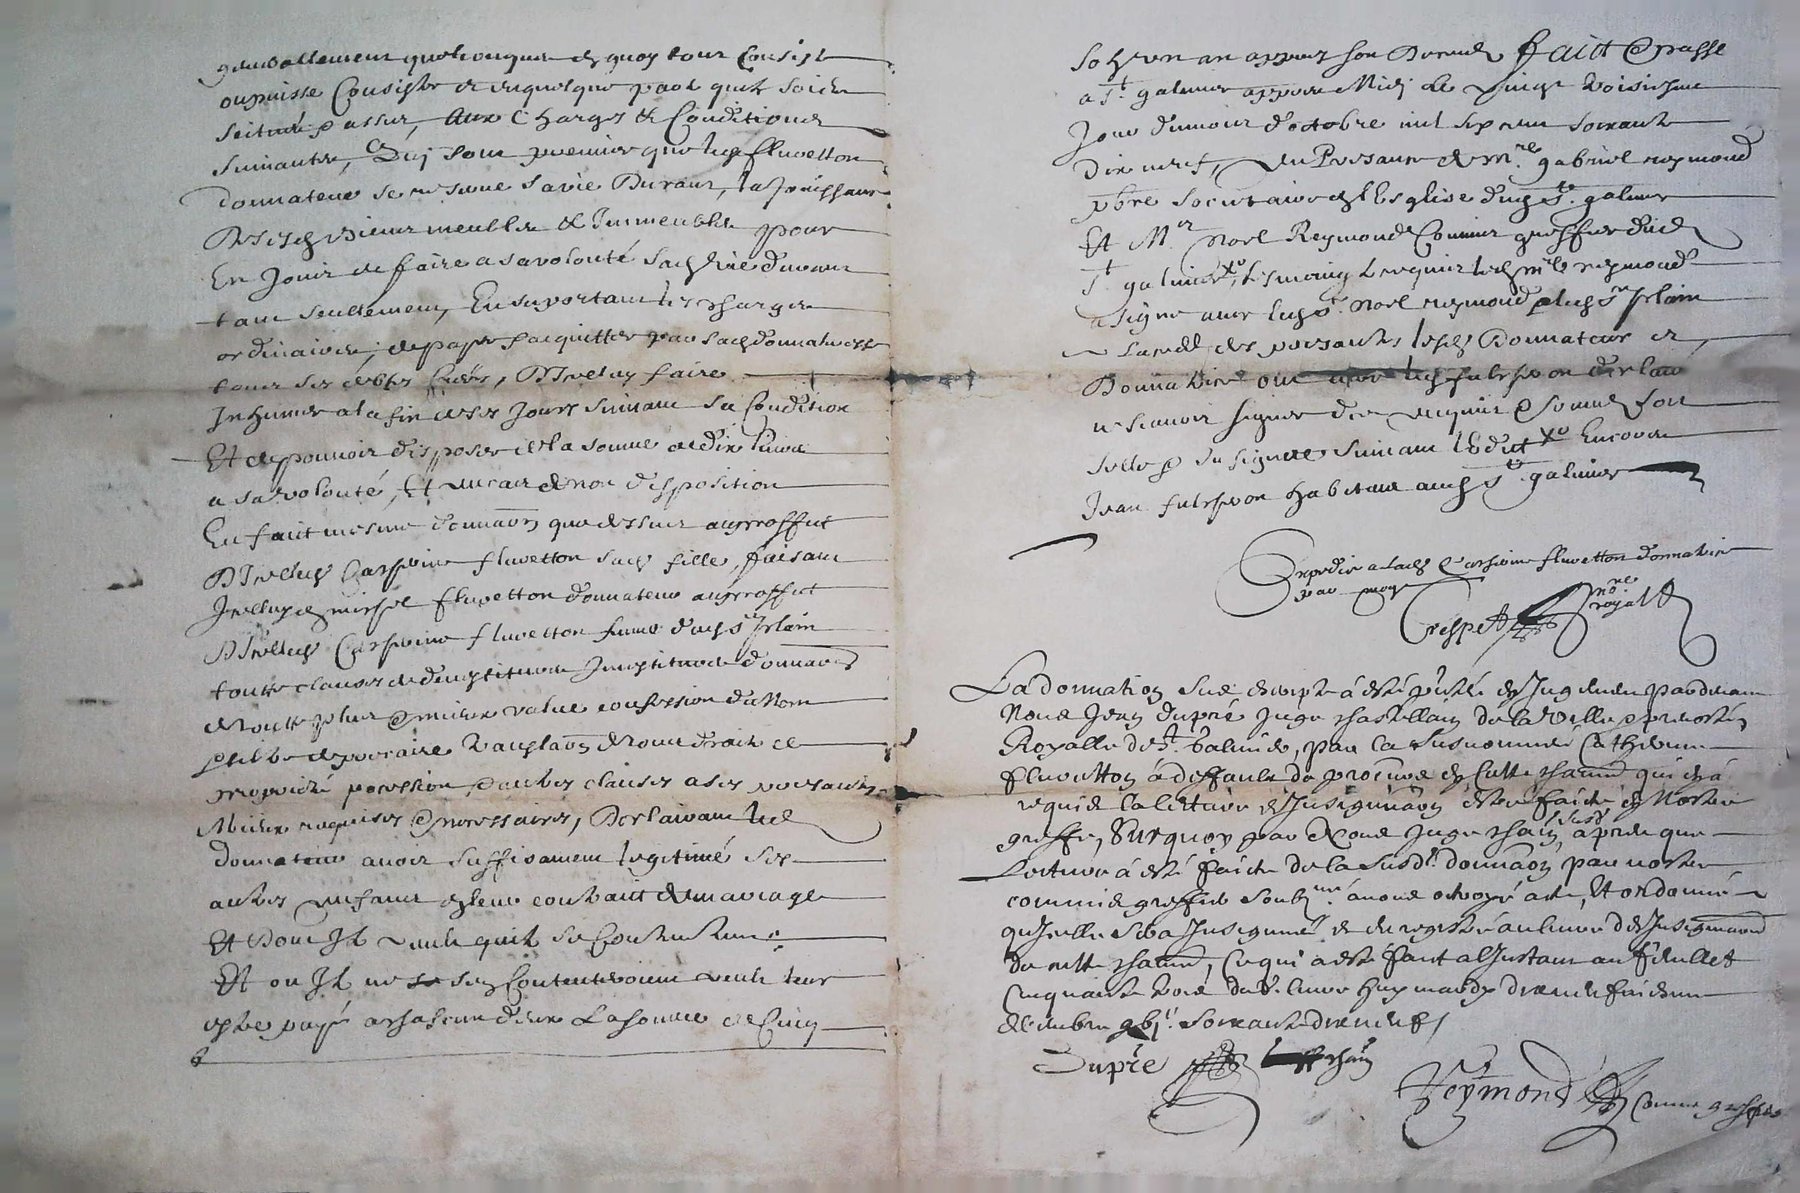 generallement quelconques et quoy tout Consiste
ou puisse Consister et en quelque part quilz soient
scitués et assis, Aux Charges et Conditions
suivantes, Qui sont premier que ledt fluvetton
donnateur se reserve sa vie Durant, la Jouissance
Desdts biens meubles et Immeubles pour
En Jouir et faire a sa volonté sadt vie durant
tant seullement, En suportant les charges
ordinaires, et payer et acquitter par ladt donnatresse
tous ses debtes, et Icelluy faire
Inhumer a la fin de ses Jours suivant sa Condition
Et de pouvoir disposer de la somme de dix livres
a sa volonté, Et en cas de non disposition
En fait mesme donnaon que dessus au proffict
D'Icelle Catherine fluvetton sadt fille, faisant
Icelluy dt michel fluvetton donnateur au proffict
D'Icelle Catherine fluvetton femme dudt Sr Jslain
toutte clauses de devestiture Investiture donnaon
de toutte plus et mieux value confession du Nom
tiltre de precaire translaon de tous droits de
proprieté possession, et autres clauses a ses presantes
Mieux requises et necessaires, Declairant led
donnateur avoir suffisament legitimé ses
autres enfans et leur contraict de mariage
Et Dont Jl veult quilz se Contentent
Et ou Jl ne se sen Contenteroient veult leur
estre payé a chascun deux La somme de Cinq
solz un an appres son Decedz faict Et passé
a St galmier appres Midy le vingt troisiesme
Jour du mois d'octobre mil six cent soixante
dix neuf, En Presance de mre gabriel reymond
pbre socittaire de l'Esglise dudt St galmier
Et Mer Noel Reymond Commis greffier dudt
St galmier, tesmoings requis ledt mre reymond
a signé avec ledt Sr Noel reymond et ledt Sr Jslain
La cedde des presantes lesdts Donnateur et
Donnatrice ont avec ledt fulchiron declairé
ne scavoir signer de ce enquis et sommé son
scellé et du signere suivant l'Edict Xo Encores
Jean fulchiron habitant audt St galmier
Expedié a ladt Catherine fluvetton donnatrice
par moy
Crespet nore royal
La donnation sus escripte à esté p'ntée et Jugement pardevant
Nous Jean dupré Juge chastellain de la ville et prevosté
Royalle de St Galmier, par la susnommée Catherine
fluvetton à deffault de procure et cette chastnie qui à
requis la lecture et Insignuaon estre faicte en Nostre
greffe, Surquoy par Nous Juge chain susd aprés que
Lecture à esté faicte de la susdte donnaon, par nostre
commis greffier soubz né avons octroyé acte, Et ordonné
qu'Jcelle sera Insignuée et enregistrée au livre des Insignuaons
de cette chastnie, Ce qui a esté faict a l'Jnstant au feuillet
Cinquante trois du d. livre huy mardy dixneufiesme
decembre gbic soixante dixneuf
Dupré chain
Reymond Comis greffier